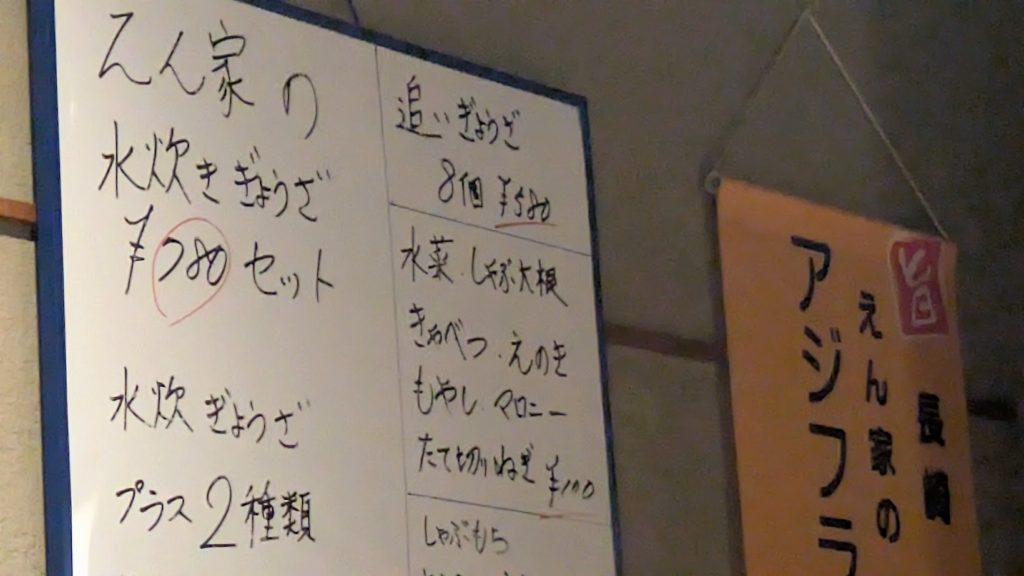 えん家の
水炊きぎょうざ
¥780セット
水炊ぎょうざ
プラス2種類
追いぎょうざ
8個 ¥580
水菜・しゃぶ大根
きゃべつ・えのき
もやし・マロニー
たて切りねぎ ¥100
しゃぶもち
旨
長崎
えん家の
アジフラ